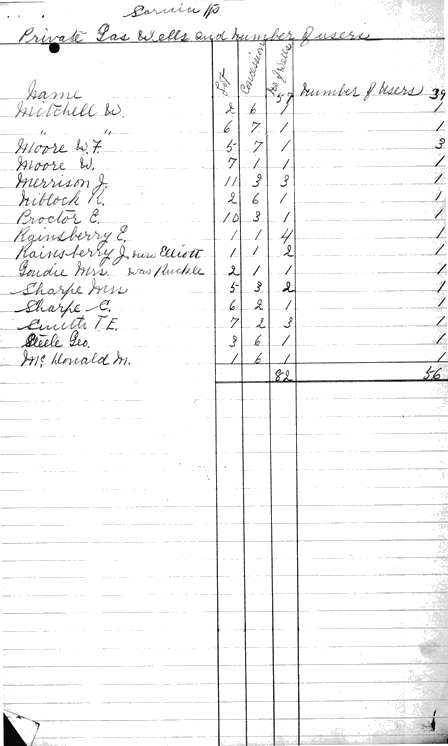 Sarnia Tp
Private Gas Wells and number of users
Name Lot Concession No of Wells 57 Number of Users 39
Mitchell W. 2 6 1 1
" " 6 7 1 1
Moore W.F. 5 7 1 3
Moore W. 7 1 1 1
Merrison J. 11 3 3 1
Niblock R. 2 6 1 1
Proctor E. 10 3 1 1
Rainsberry E. 1 1 4 1
Rainsberry J. now Elliott 1 1 2 1
Goudie Mrs. was Ruckle 2 1 1 1
Sharpe Mrs 5 3 2 1
Sharpe C. 6 2 1 1
Smith T.E. 7 2 3 1
Steele Geo. 3 6 1 1
McDonald M. 1 6 1 1
82 56